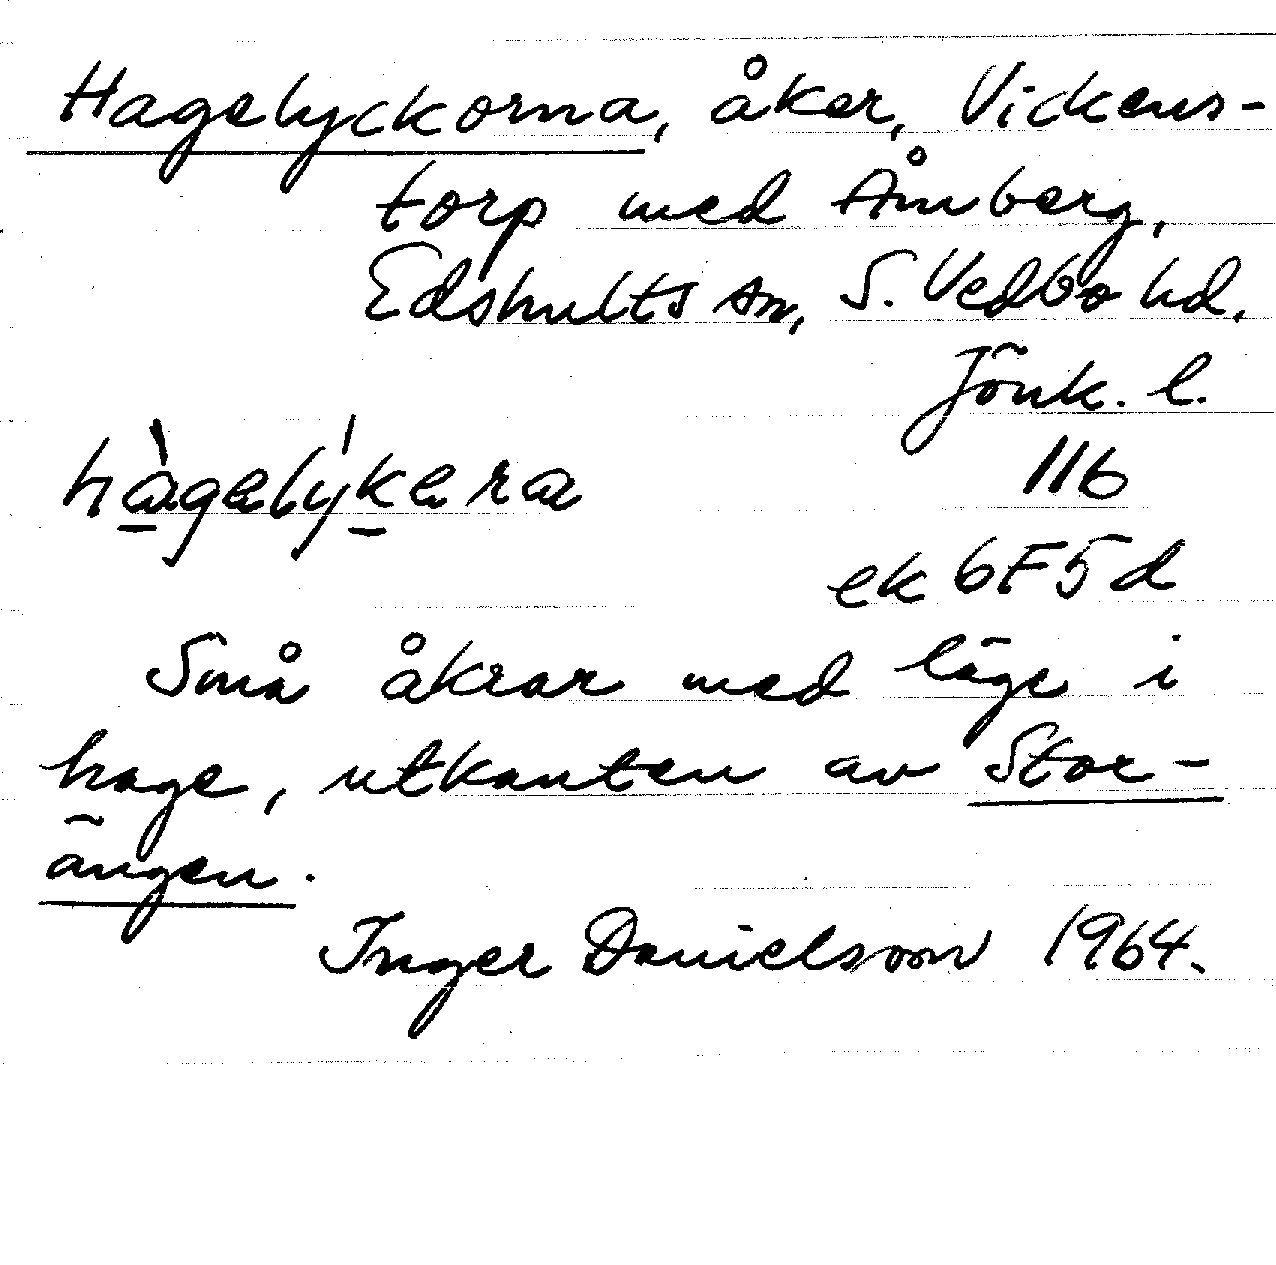 Hagelyckorna, åker, Vickens-
torp med Åmberg,
Edshults sn, S. Vedbo hd.
Jönk. l.
hàgelýkera 116
ek 6F5d
Små åkrar med läge i
hage, utkanten av Stor-
ängen.
Inger Danielsson 1964.